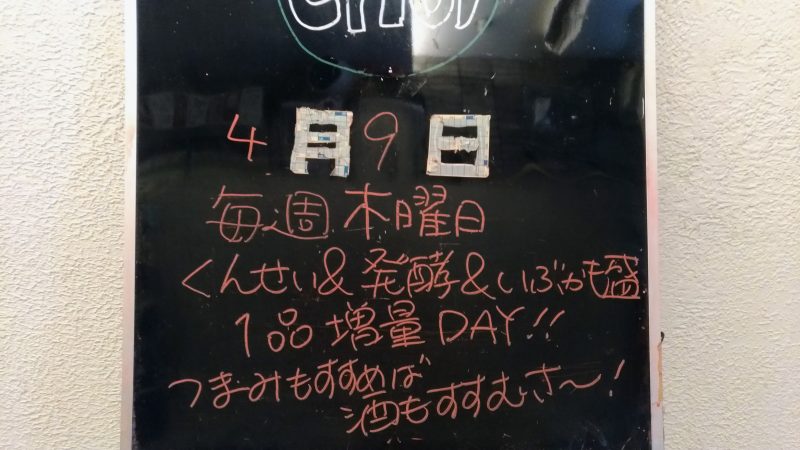 4月9日
毎週木曜日
くんせい&発酵&いぶかも盛
1品増量DAY!!
つまみもすすめば
酒もすすむさ〜!